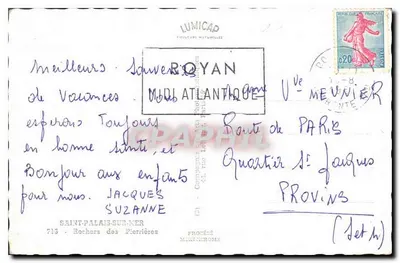 LUMICAP
ROYAN
MIDI ATLANTIQUE
0,20
Meilleurs Souvenirs
de Vacances. Nous
esperons Toujours
en bonne santé, et
Bonjour aux enfants
pour nous. JACQUES
SUZANNE
Mame Vve MEUNIER
Route de PARIS
Quartier St Jacques
PROVINS
(Set M)
SAINT-PALAIS-SUR-MER
715 - Rochers des Pierrières